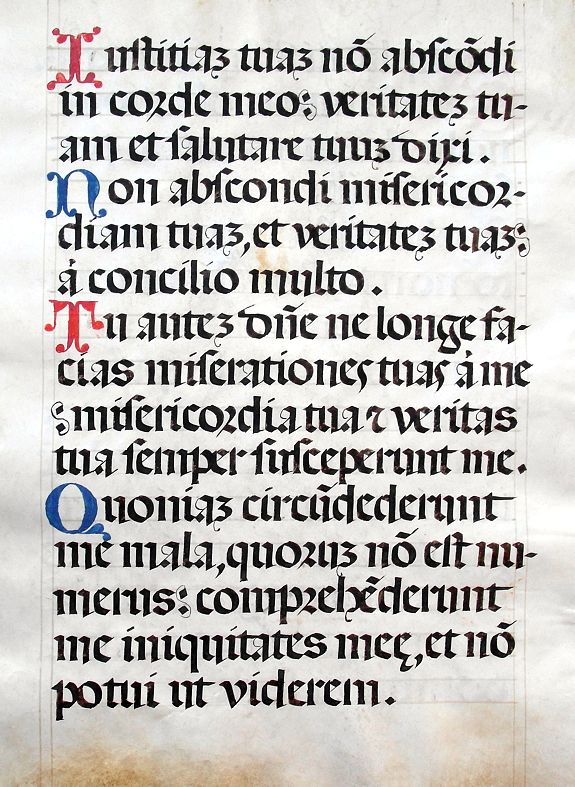 Iustitiaz tuaz nō abscōdi
in corde meo: veritatez tu-
am et salutare tuuz dixi.
Non abscondi misericor-
diam tuaz, et veritatez tuaz:
à concilio multo.
Tu autez dn̄e ne longe fa-
cias miserationes tuas à me
:misericordia tua ⁊ veritas
tua semper susceperunt me.
Quoniaz circūdederunt
me mala, quoruz nō est nu-
merus: comprehēderunt
me iniquitates meę, et nō
potui ut viderem.